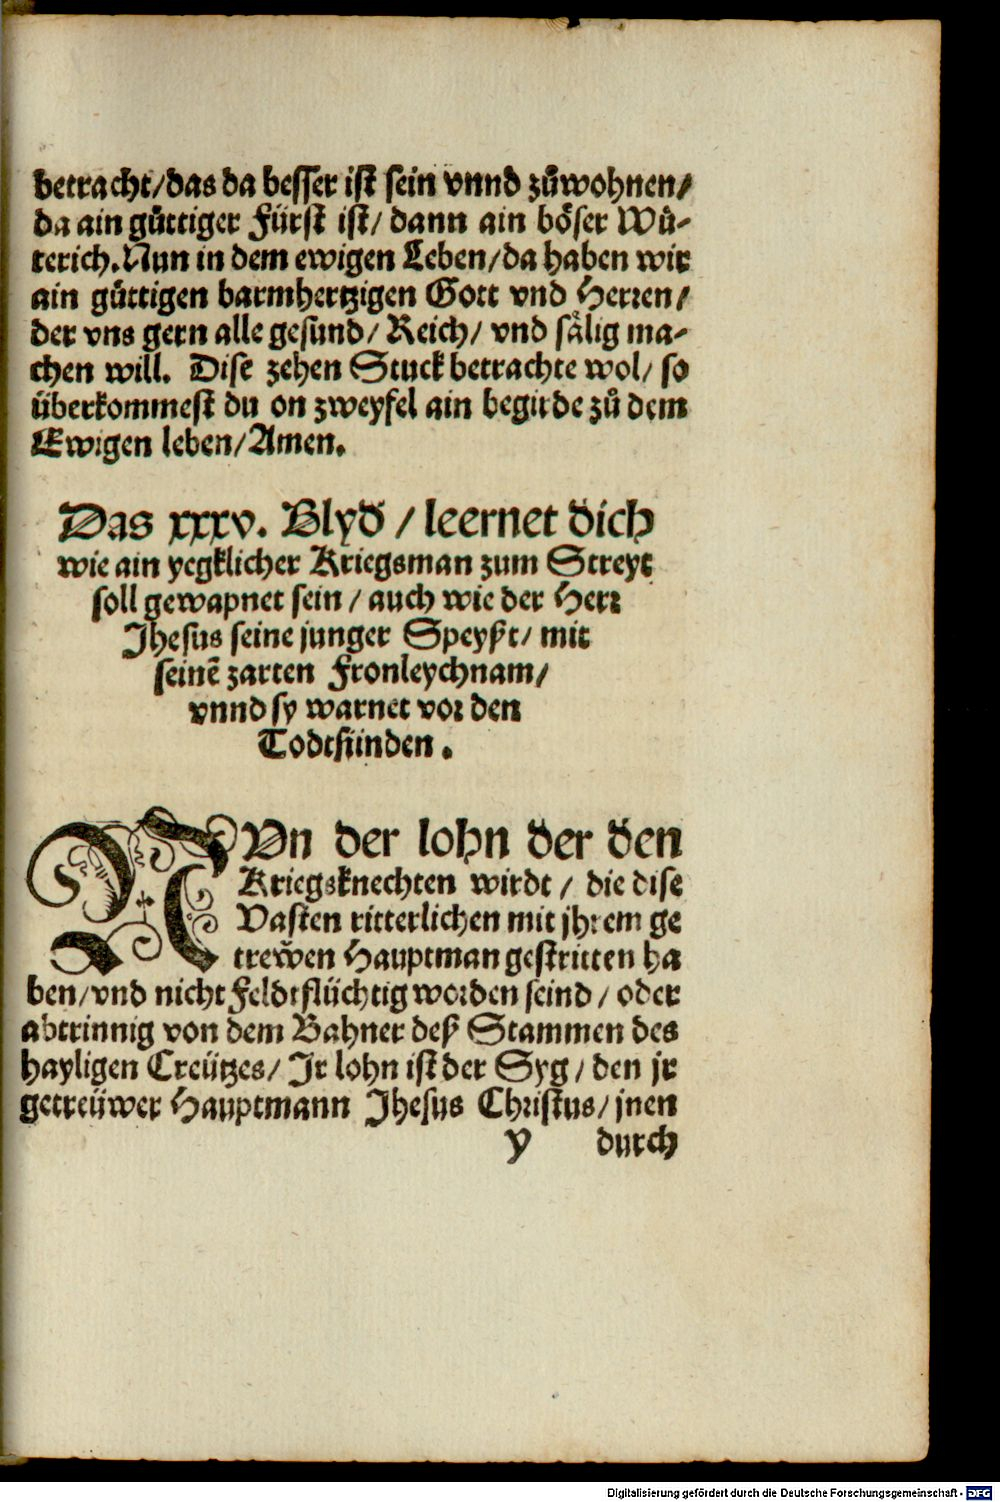 betracht/das da besser ist sein vnnd zůwohnen/
da ain gůttiger Fürst ist/ dann ain böser Wů-
terich. Nun in dem ewigen Leben/da haben wir
ain gůttigen barmhertzigen Gott vnd Herren/
der vns gern alle gesund/ Reich/ vnd sälig ma-
chen will. Dise zehen Stuck betrachte wol/ so
überkommest du on zweyfel ain begirde zů dem
Ewigen leben/Amen.
Das xxxv. Blyd /leernet dich
wie ain yegklicher Kriegsman zum Streyt
soll gewapnet sein/ auch wie der Herr
Jhesus seine junger Speyßt/ mit
seinē zarten Fronleychnam/
vnnd sy warnet vor den
Todtsünden.
NUn der lohn der den
Kriegsknechten wirdt/ die dise
Vasten ritterlichen mit jhrem ge
trewen Hauptman gestritten ha
ben/vnd nicht Feldtflüchtig worden seind/ oder
abtrinnig von dem Bahner deß Stammen des
hayligen Creützes/ Jr lohn ist der Syg/ den jr
getreüwer Hauptmann Jhesus Christus/ jnen
y durch
Digitalisierung gefördert durch die Deutsche Forschungsgemeinschaft - DFG